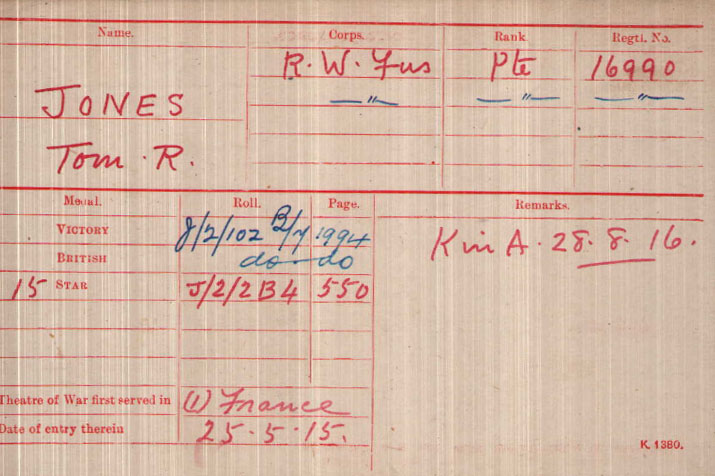 Name. Corps. Rank Regtl. No.
R. W. Fus Pte 16990
JONES —"— —"— —"—
Tom. R.
Medal. Roll. Page. Remarks.
VICTORY J/2/102 B/7 1994 K in A. 28. 8. 16.
BRITISH do do
15 STAR J/2/2 B4 550
Theatre of War first served in (1) France
Date of entry therein 25.5.15.
K 1380.